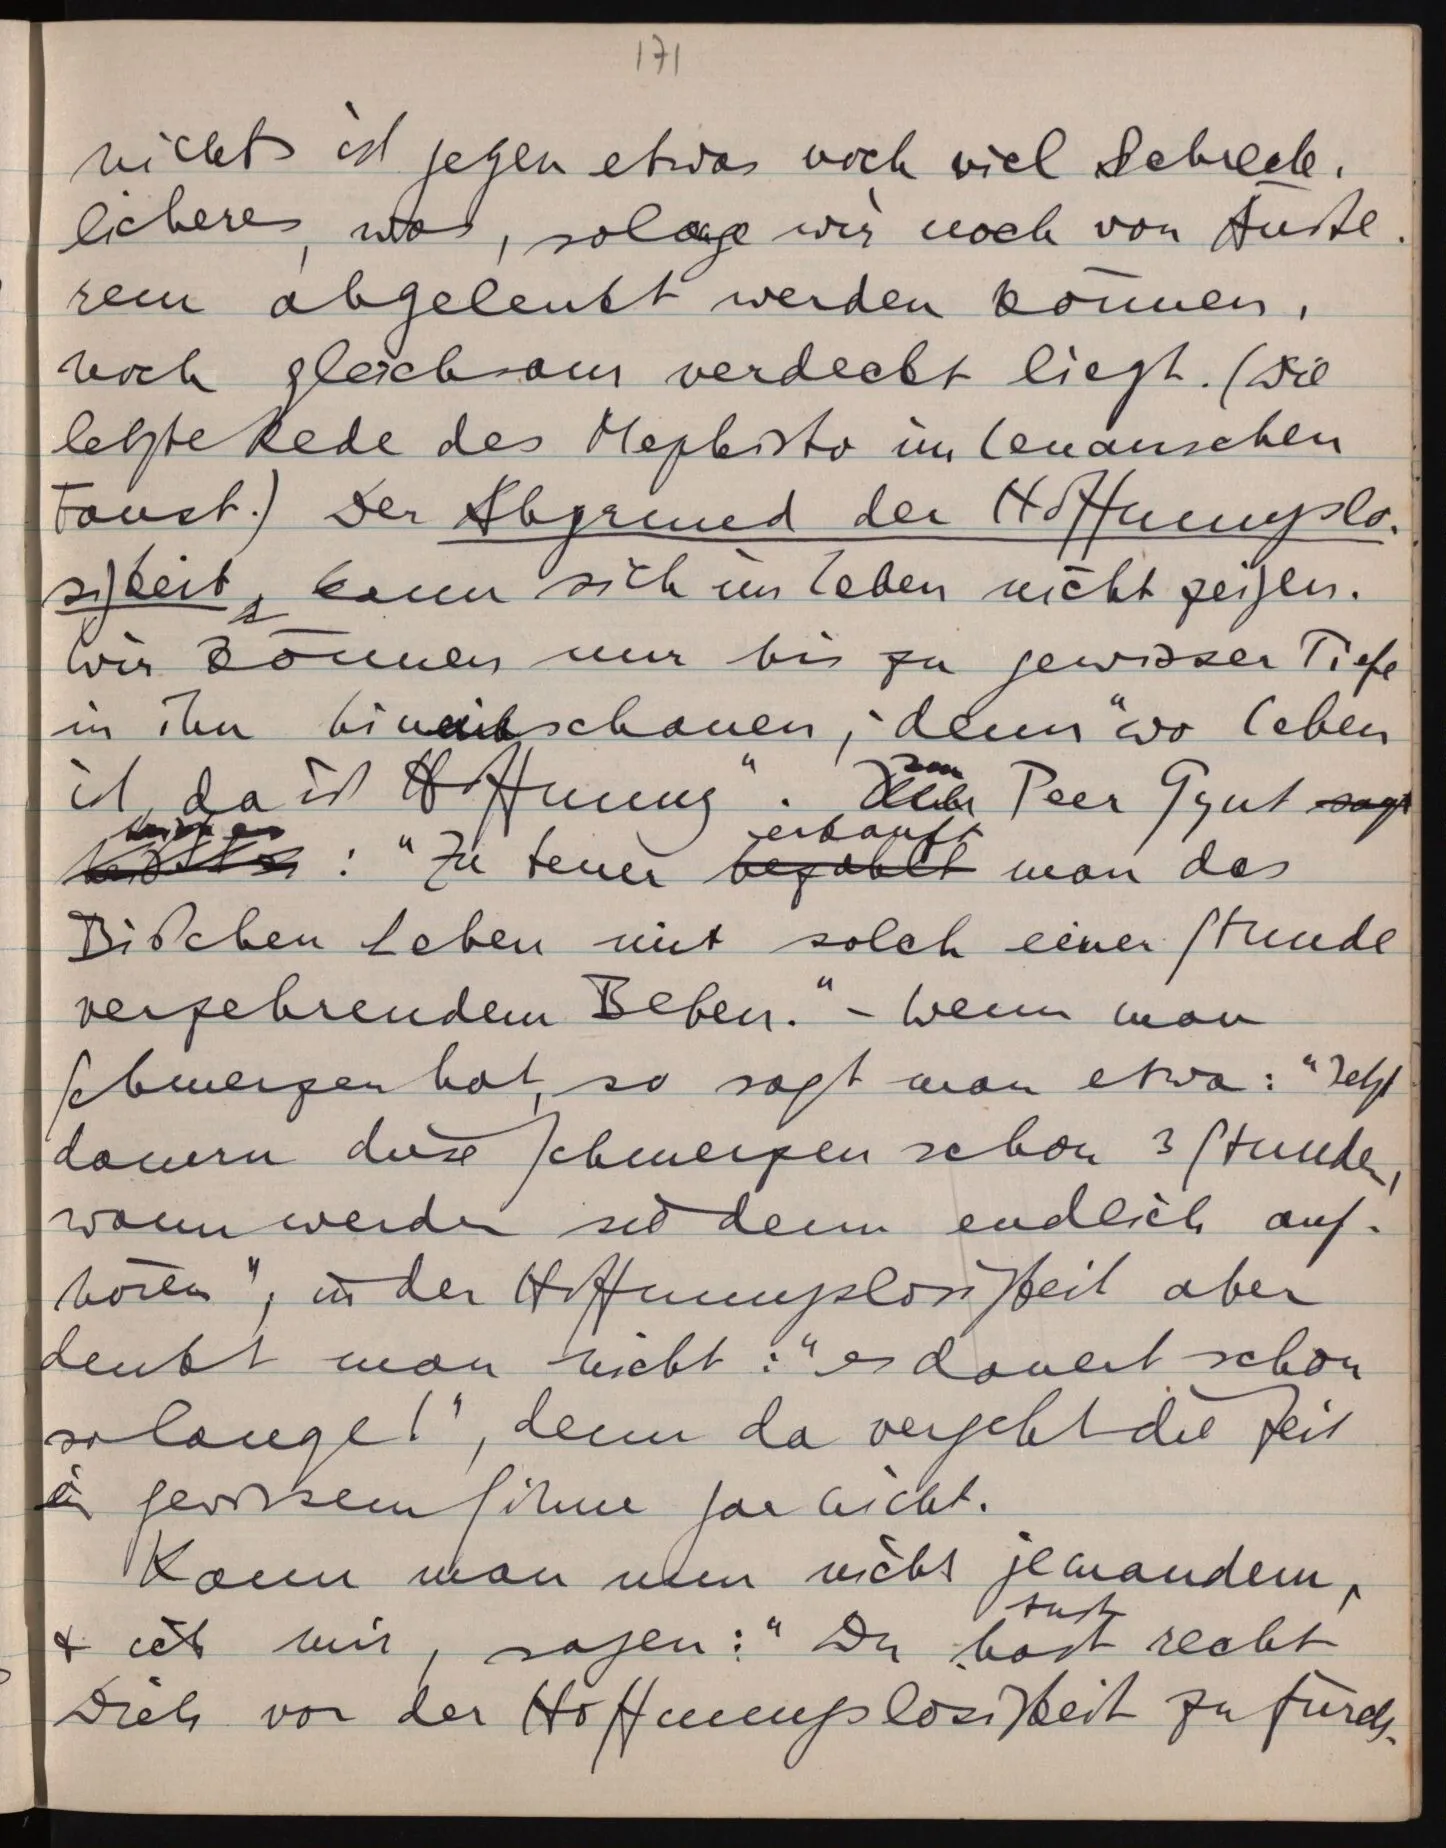 171
nichts ist gegen etwas noch viel Schreck-
licheres, was, solange wir noch von Äuße-
rem abgelenkt werden können,
noch gleichsam verdeckt liegt. (Die
letzte Rede des Mephisto im Lenauschen
Faust.) Der Abgrund der Hoffnungslo-
sigkeit, kann sich im Leben nicht zeigen.
Wir können nur bis zu gewisser Tiefe
in ihn hineinschauen, denn "wo Leben
ist, da ist Hoffnung". Im Peer Gynt sagt
: "Zu teuer bezahlt erkauft man das
Bißchen Leben mit solch einer Stunde
verzehrendem Beben." – Wenn man
Schmerzen hat, so sagt man etwa: "Jetzt
dauern diese Schmerzen schon 3 Stunden,
wann werden sie denn endlich auf-
hören", in der Hoffnungslosigkeit aber
denkt man nicht: "es dauert schon
so lange!", denn da vergeht die Zeit
in gewissem Sinne gar nicht.
Kann man nun nicht jemandem,
& ich mir, sagen: "Du hast tust recht
Dich vor der Hoffnungslosigkeit zu fürch-